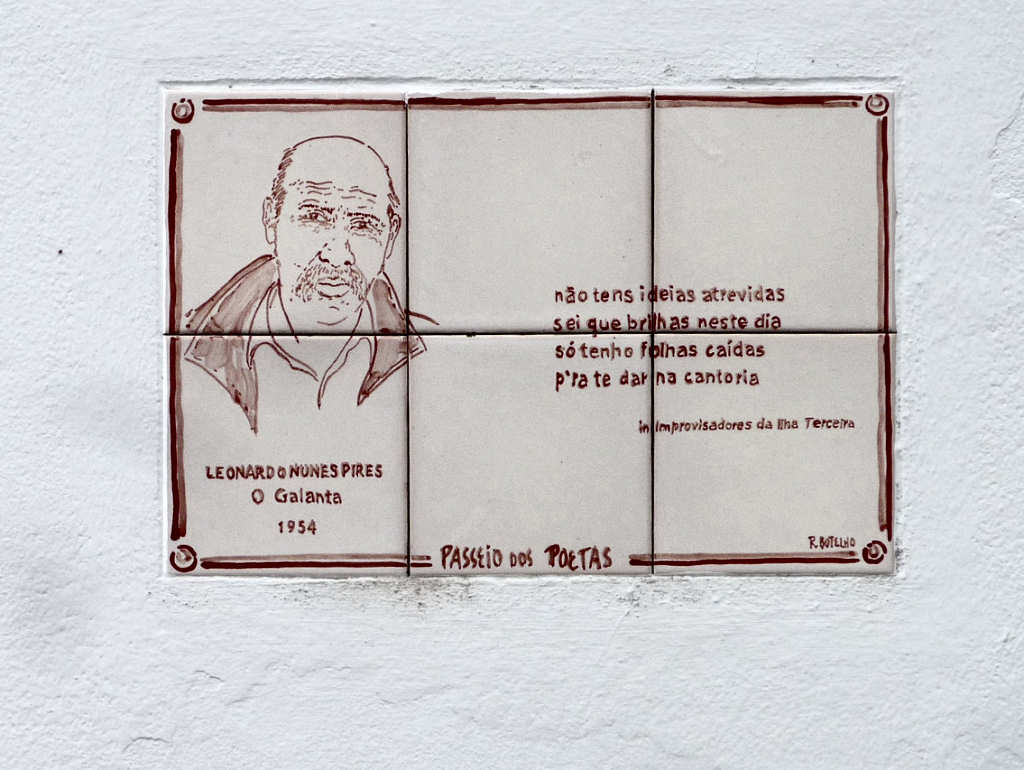 não tens ideias atrevidas
sei que brilhas neste dia
só tenho folhas caídas
p'ra te dar na cantoria
in Improvisadores da Ilha Terceira
LEONARDO NUNES PIRES
O Galanta
1954
R. BOTELHO
PASSEIO DOS POETAS